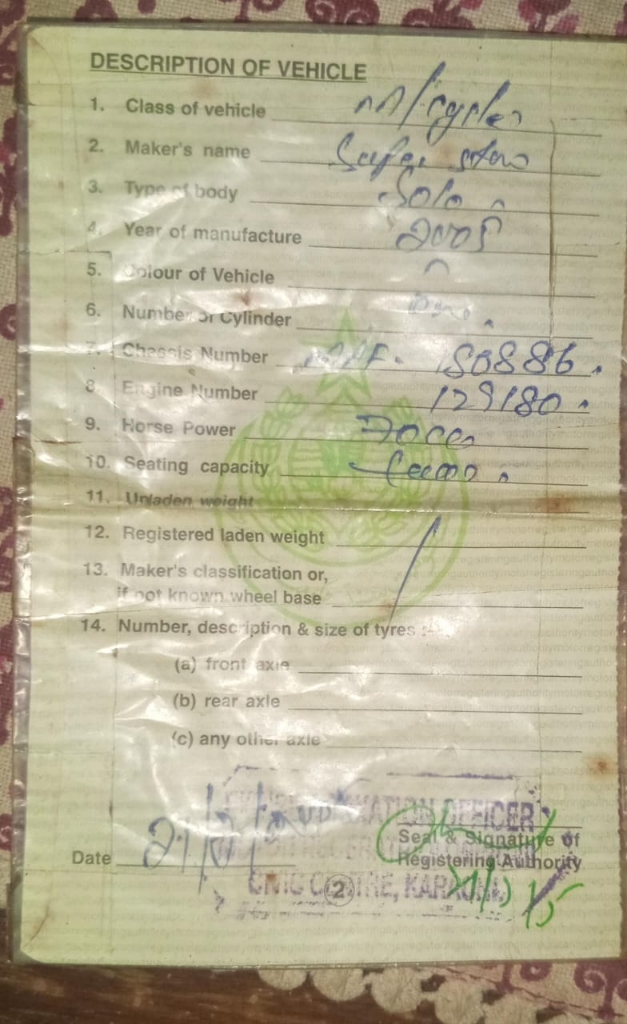 DESCRIPTION OF VEHICLE
1. Class of vehicle M/cycle
2. Maker's name Super Star
3. Type of body Solo
4. Year of manufacture 2005
5. Colour of Vehicle
6. Number of Cylinder
7. Chassis Number 180886
8. Engine Number 129180
9. Horse Power 70cc
10. Seating capacity
11. Unladen weight
12. Registered laden weight
13. Maker's classification or,
if not known wheel base
14. Number, description & size of tyres :-
(a) front axle
(b) rear axle
(c) any other axle
TAXATION OFFICER
Seal & Signature of
Date Registering Authority
CIVIC CENTRE, KARACHI
2